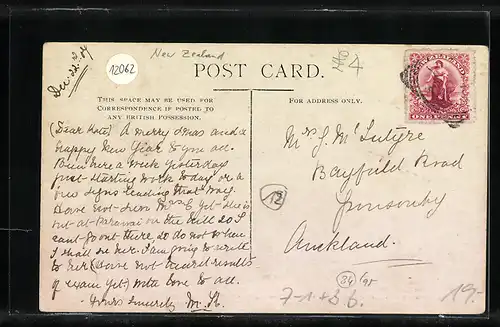 Dec. 22nd 04
12062
New Zealand
POST CARD.
THIS SPACE MAY BE USED FOR
CORRESPONDENCE IF POSTED TO
ANY BRITISH POSSESSION.
FOR ADDRESS ONLY.
(Dear Kate) A merry Xmas and a
happy New Year to you all.
Been here a week yesterday
just starting work to-day or a
few signs leading that way.
Have not seen Mrs C yet she is
out at the hill so I
cant go out there so do not when
I shall see her. I am going to write
to her (Have not heard results
of exam yet) with love to all.
Yours sincerely M. K.
NEW ZEALAND
ONE PENNY
Mrs J. McIntyre
Bayfield Road
Ponsonby
Auckland.
12
7-1
19.-